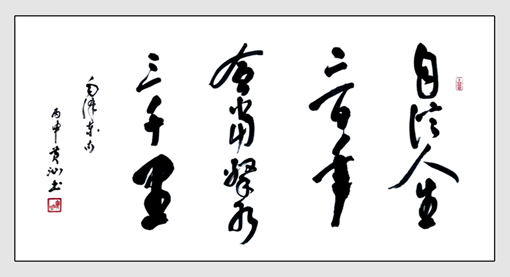 自信人生
二百年
会当击水
三千里
毛泽东句
丙申黄汕书